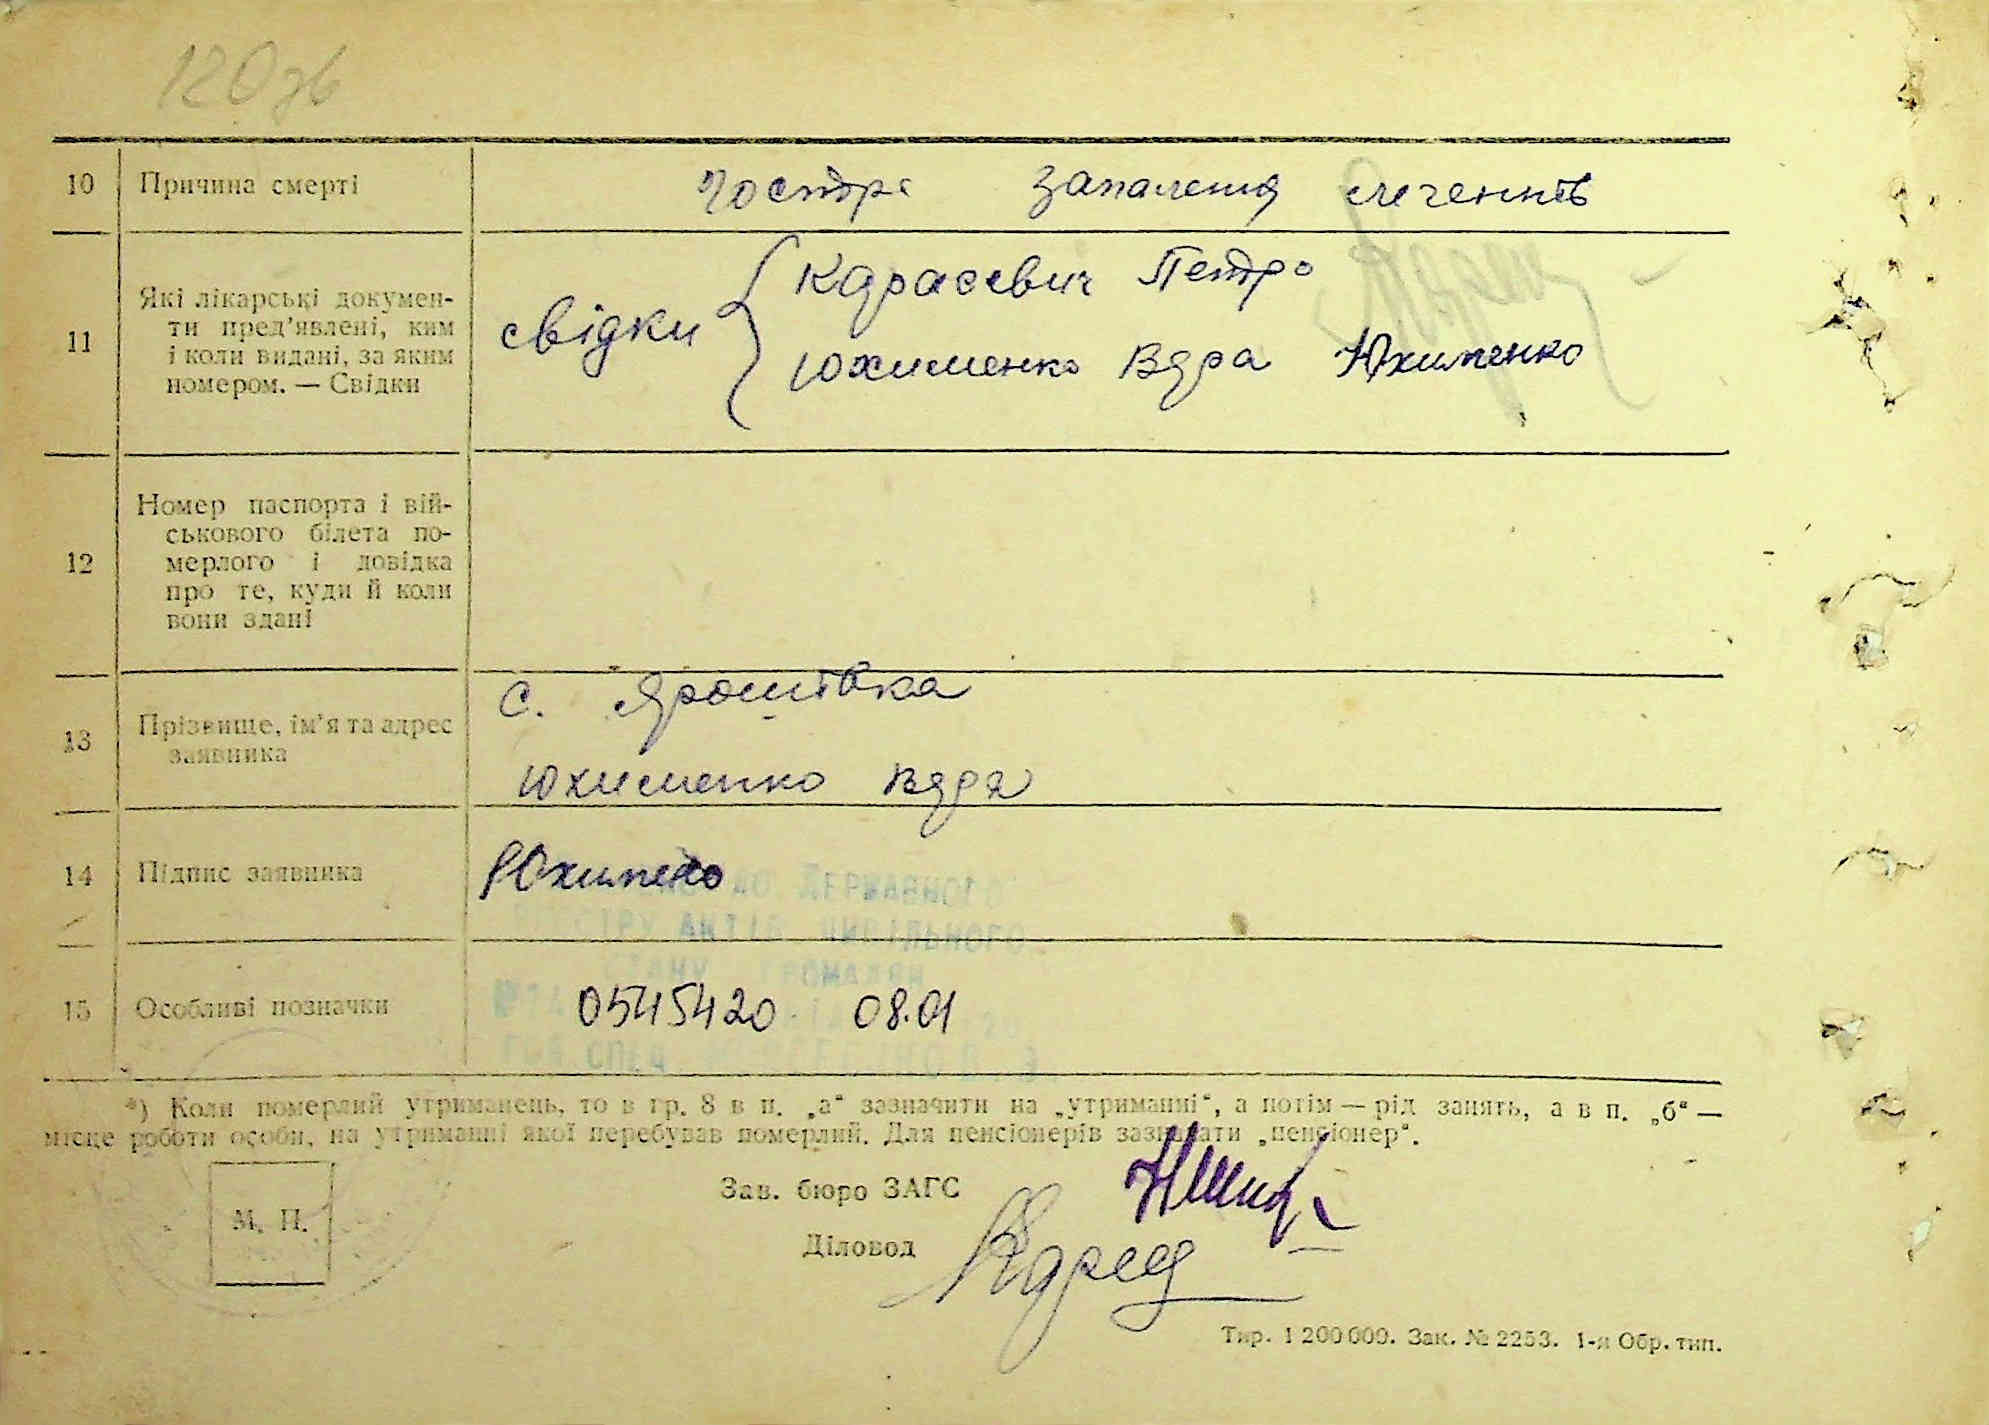 120 зв
10 Причина смерті гостре запалення легенів
11 Які лікарські докумен-
ти пред'явлені, ким
і коли видані, за яким
номером. — Свідки
свідки
Карасевич Петро
Юхименко Вяра Юхименко
12 Номер паспорта і вій-
ськового білета по-
мерлого і довідка
про те, куди й коли
вони здані
13 Прізвище, ім'я та адрес
заявника
с. Ярошівка
Юхименко Вяра
14 Підпис заявника Юхименко
ДО ДЕРЖАВНОГО
РЕЄСТРУ АКТІВ ЦИВІЛЬНОГО
СТАНУ ГРОМАДЯН
15 Особливі позначки 0545420 08.01
ГОЛ СПЕЦ
*) Коли померлий утриманець, то в гр. 8 в п. „а“ зазначити на „утриманні“, а потім — рід занять, а в п. „б“ —
місце роботи особи, на утриманні якої перебував померлий. Для пенсіонерів зазначати „пенсіонер“.
Зав. бюро ЗАГС
М. П.
Діловод
Тир. 1 200 000. Зак. № 2253. 1-я Обр. тип.